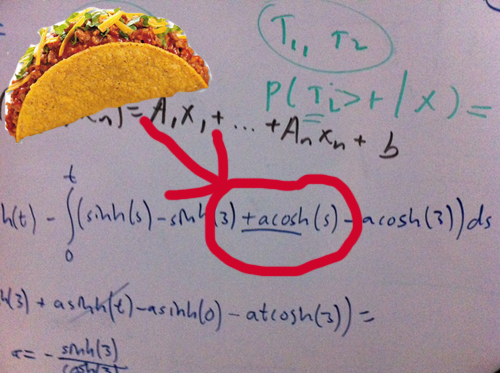 T₁, T₂
P(Tᵢ>t | X) =
n) = A₁X₁ + ... + AₙXₙ + b
h(t) - ∫₀ᵗ (sinh(s) - sinh(3) + acosh(s) - acosh(3)) ds
h(3) + asinh(t) - asinh(0) - atcosh(3)) =
a = - sinh(3)/cosh(3)